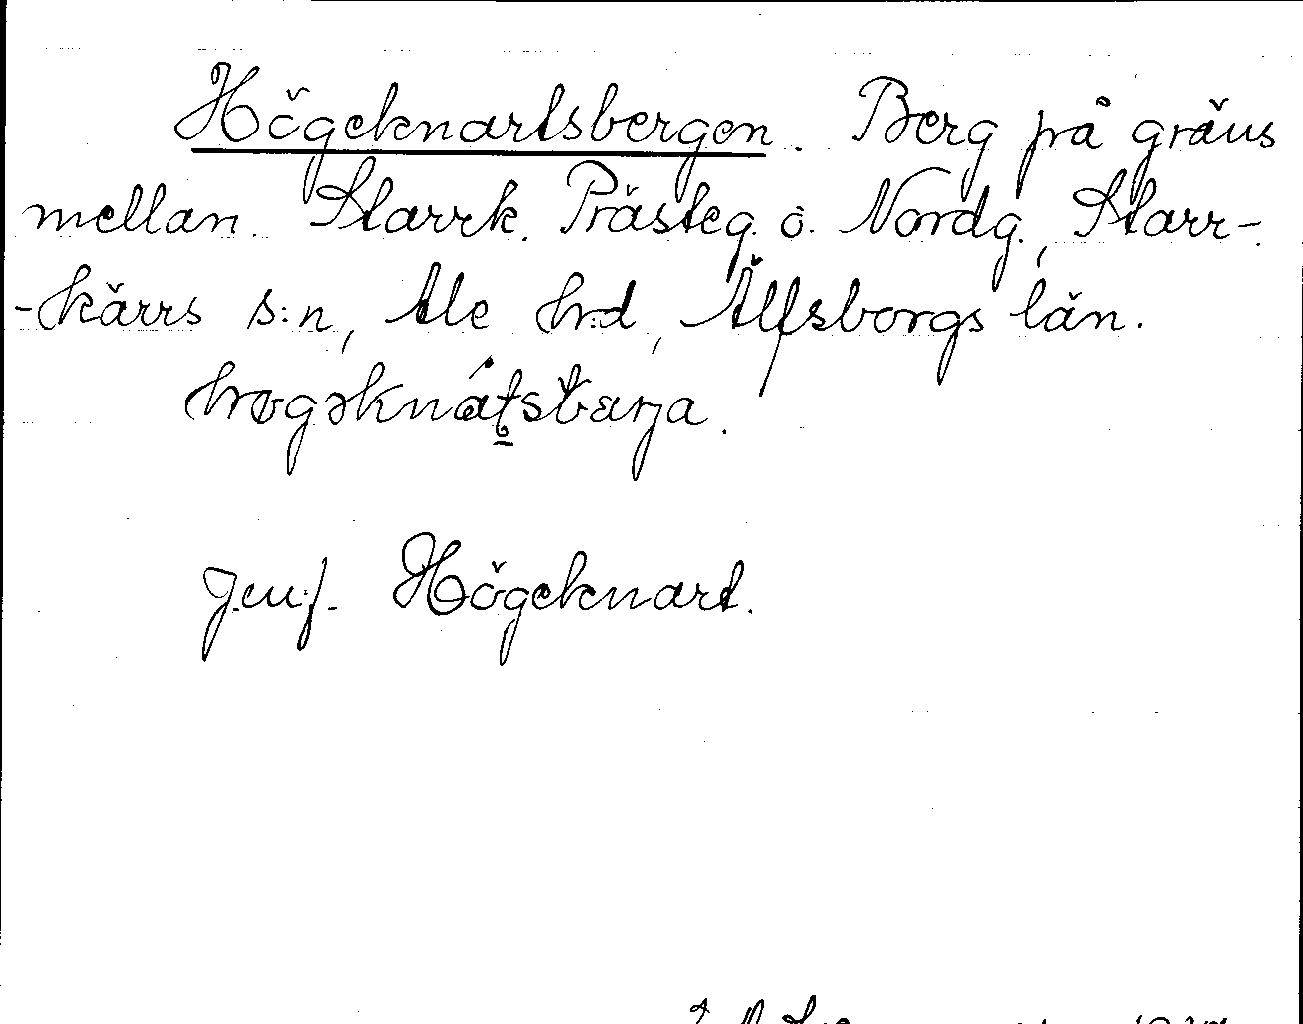 Högeknartsbergen. Berg på gräns
mellan Starrk. Prästeg. o. Nordg., Starr-
-kärrs s:n, Ale hrd, Älfsborgs län.
høgəknátsbærja.
Jemf. Högeknart.